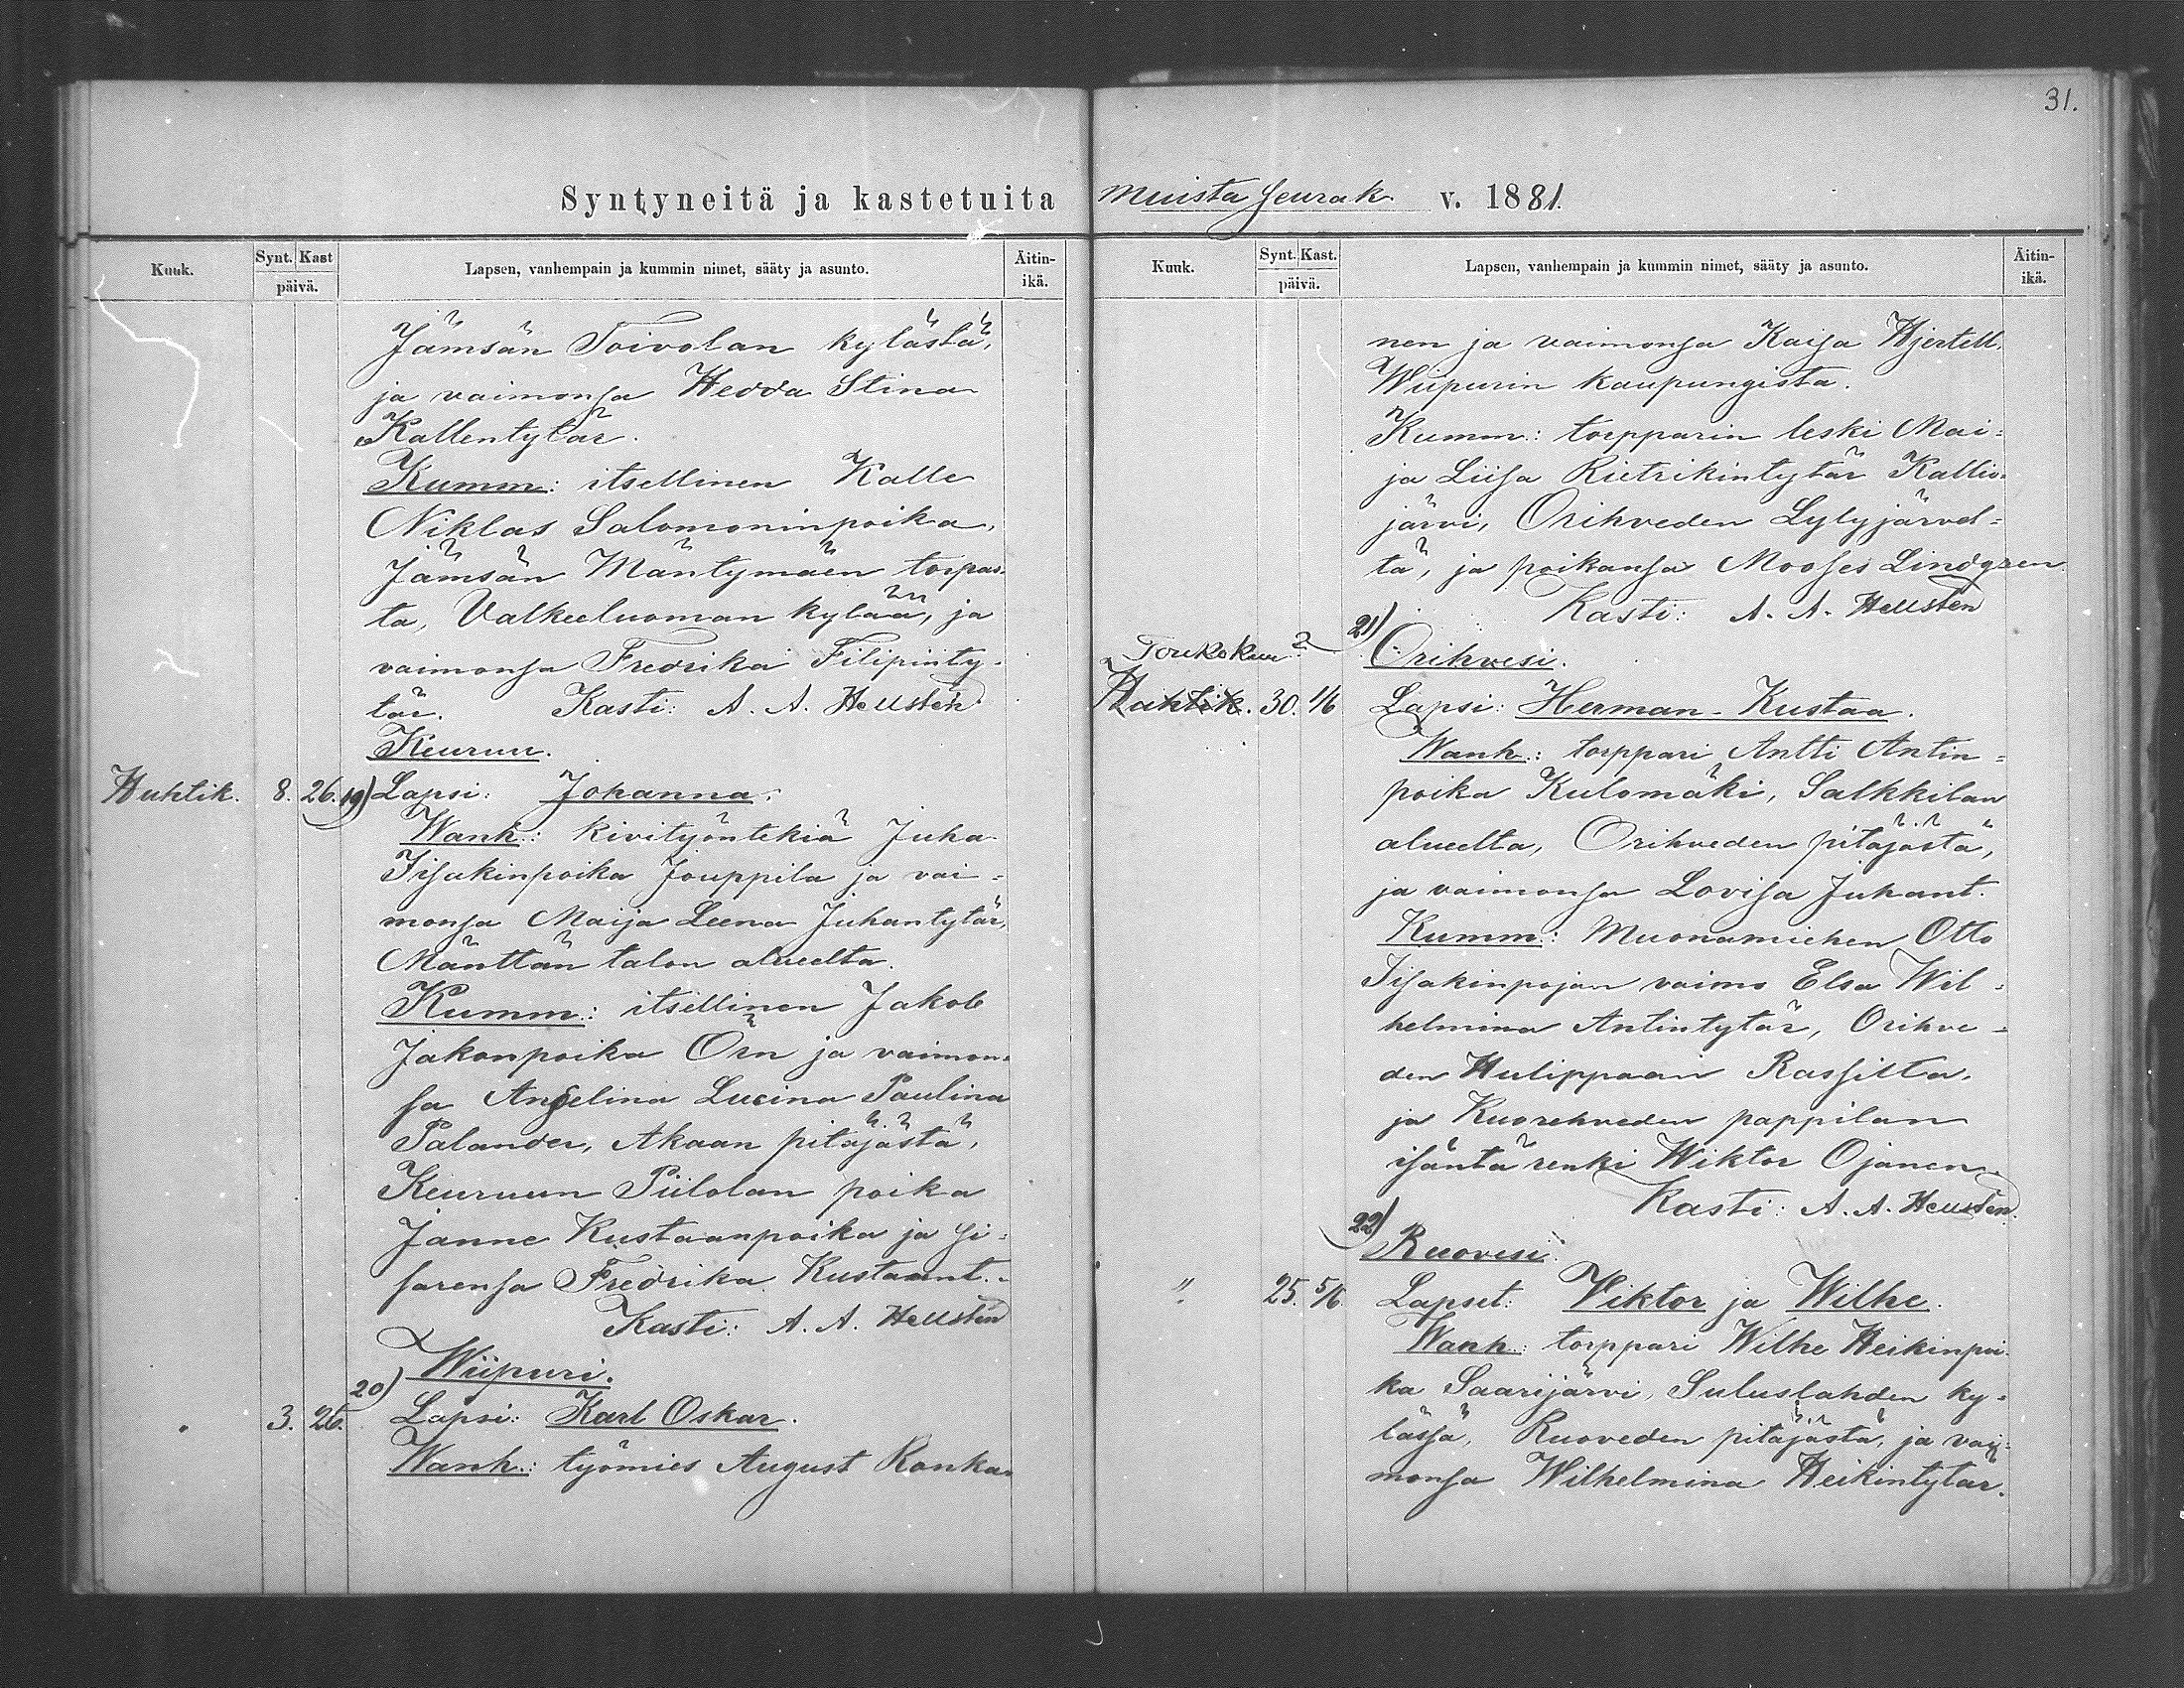 31.
Syntyneitä ja kastetuita muista seurak. v. 1881.
Kuuk. Synt. Kast päivä. Lapsen, vanhempain ja kummin nimet, sääty ja asunto. Äitin-ikä.
Jämsän Toivolan kylästä,
ja vaimonsa Hedda Stina
Kallentytär.
Kumm: itsellinen Kalle
Niklas Salomoninpoika,
Jämsän Mäntymäen torpas-
ta, Valkeeluoman kylää, ja
vaimonsa Fredrika Filipinty-
tär. Kasti: A. A. Hellsten
Keuruu.
Huhtik. 8. 26. 19) Lapsi: Johanna.
Wanh.: kivityöntekiä Juha
Iisakinpoika Jouppila ja vai=
monsa Maija Leena Juhantytär,
Mänttän talon alueelta.
Kumm.: itsellinen Jakob
Jakonpoika Örn ja vaimon-
sa Angelina Lucina Paulina
Palander, Akaan pitäjästä,
Keuruun Piilolan poika
Janne Kustaanpoika ja si=
sarensa Fredrika Kustaant.
Kasti: A. A. Hellsten
Wiipuri.
20)
" 3. 26. Lapsi: Karl Oskar.
Wanh.: työmies August Ronka
Kuuk. Synt. Kast. päivä. Lapsen, vanhempain ja kummin nimet, sääty ja asunto. Äitin-ikä.
nen ja vaimonsa Kaisa Hjertell.
Wiipurin kaupungista.
Kumm.: torpparin leski Mai=
ja Liisa Rietrikintytär Kallio-
järvi, Orihveden Lylyjärvel=
tä, ja poikansa Mooses Lindgren
Kasti: A. A. Hellsten
21)
Toukokuu 2 Orihvesi.
Huhtik. 30. 1/6 Lapsi: Herman-Kustaa.
Wanh.: torppari Antti Antin=
poika Kulomäki, Salkkilan
alueelta, Orihveden pitäjästä,
ja vaimonsa Lovisa Juhant.
Kumm.: Muonamiehen Otto
Iisakinpojan vaimo Elsa Wil=
helmina Antintytär, Orihve=
den Hulippaan Rassilta,
ja Kuorehveden pappilan
isäntä renki Wiktor Ojanen.
Kasti: A. A. Hellsten.
22)
Ruovesi.
" 25. 5/6. Lapset: Viktor ja Wilhe.
Wanh.: torppari Wilhe Heikinpoi-
ka Saarijärvi, Suluslahden ky=
lässä, Ruoveden pitäjästä, ja vai=
monsa Wilhelmina Heikintytär.